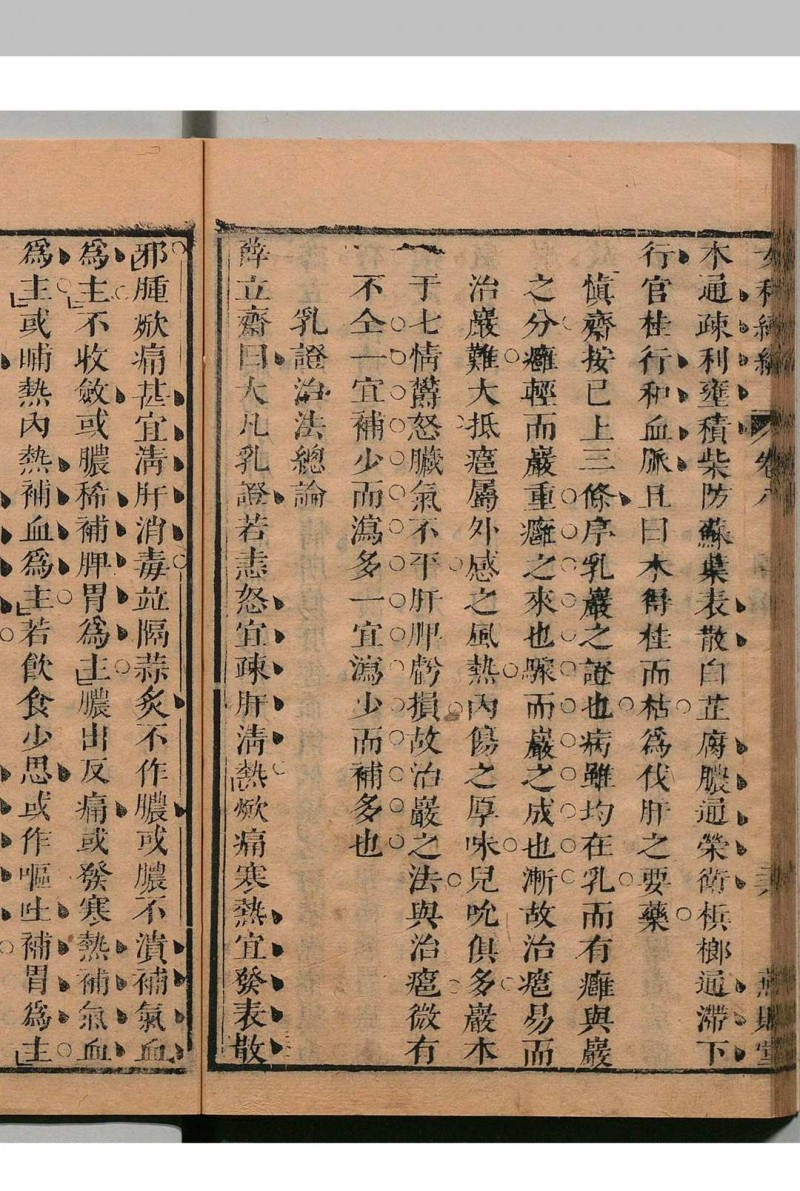 木通疎利壅積柴防蘇葉表散白芷腐膿通榮衛檳榔通滯下
行官桂行和血脈且曰木得桂而枯為伐肝之要藥
慎齋按已上三條序乳巖之證也病雖均在乳而有癰與巖
之分癰輕而巖重癰之來也驟而巖之成也漸故治癰易而
治巖難大抵癰屬外感之風熱內傷之厚味兒吮俱多巖本
于七情欝怒臟氣不平肝脾虧損故治巖之法與治癰微有
不仝一宜補少而瀉多一宜瀉少而補多也
乳證治法總論
薛立齋曰大凡乳證若恚怒宜疎肝淸熱焮痛寒熱宜發表散
邪腫焮痛甚宜淸肝消毒並隔蒜炙不作膿或膿不潰補氣血
為主不收斂或膿稀補脾胃為主膿出反痛或發寒熱補氣血
為主或晡熱內熱補血為主若飲食少思或作嘔吐補胃為主